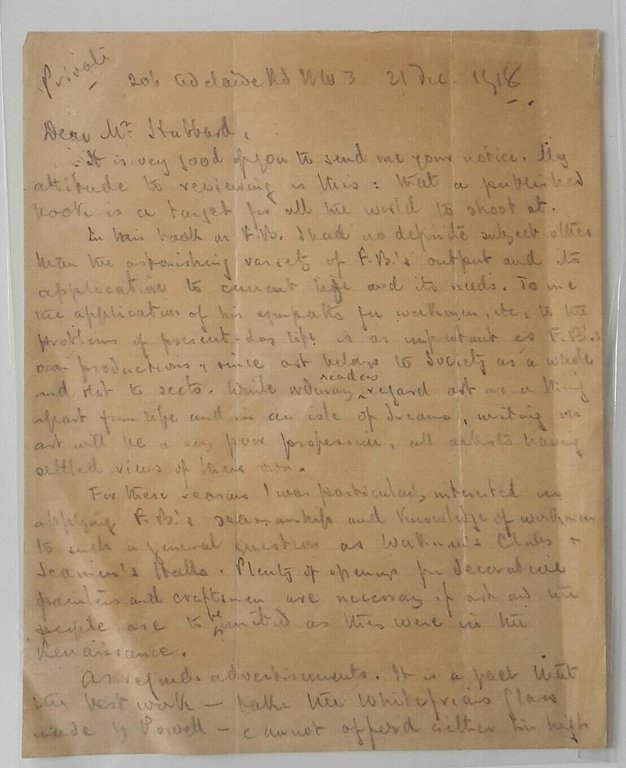 Private
205 Adelaide Rd NW 3 21 Dec. 1918
Dear Mr. Hubbard,
It is very good of you to send me your notice. My
attitude to reviewing is this: that a published
book is a target for all the world to shoot at.
In this book on F.B. I had no definite subject other
than the astonishing variety of F.B.'s output and its
application to current life and its needs. To me
the application of his sympathy for workmen, etc, to the
problems of present-day life is as important as F.B.'s
own productions, since art belongs to Society as a whole
and not to sects. While ordinary readers regard art as a thing
apart from life and in an isle of dreams, writing on
art will be a very poor profession, all artists having
settled views of their own.
For these reasons I was particularly interested in
applying F.B.'s seamanship and knowledge of workmen
to such a general question as Workmen's Clubs &
Seamen's Halls. Plenty of openings for decorative
painters and craftsmen are necessary if art and the
people are to be united as they were in the
Renaissance.
As regards advertisements. It is a fact that
the best work — take the Whitefriars Glass
made by Powell — cannot afford either his high